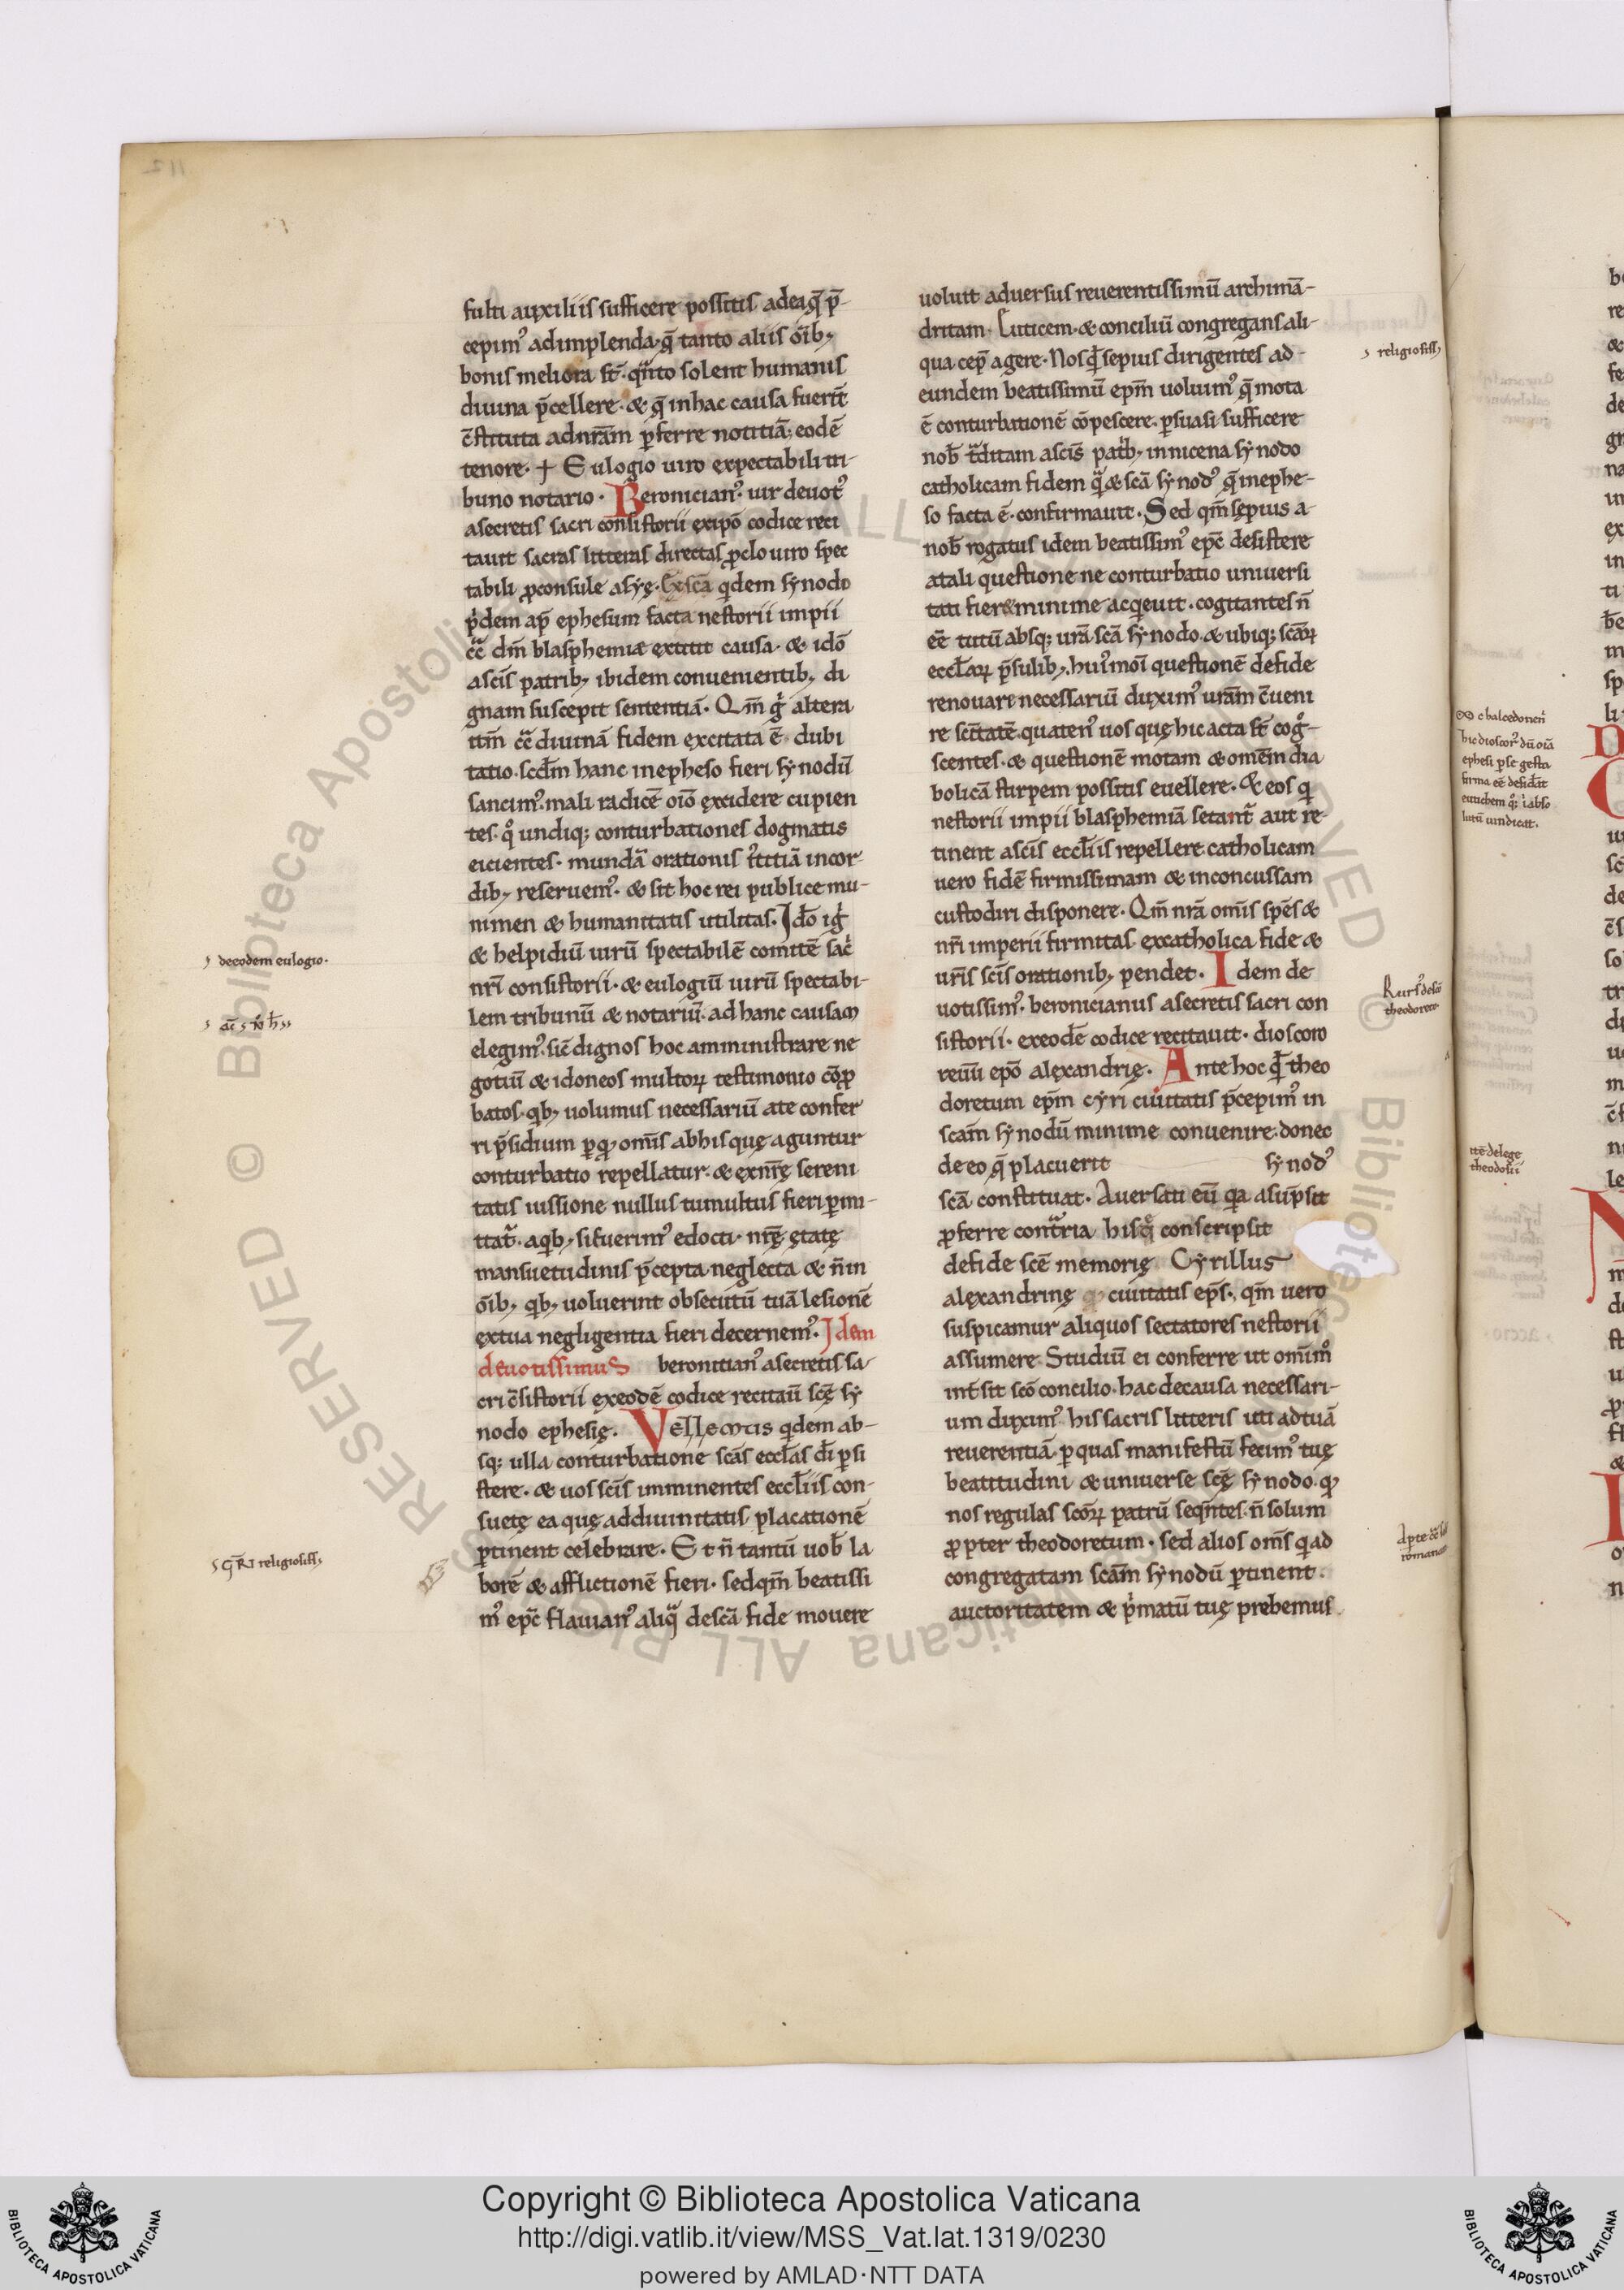 fulti auxiliis sufficere possitis adeaq̄ p̄-
cepim᾽ adimplenda. q̄ tanto aliis oīb;
bonis meliora st̄. qnto solent humanis
diuina p̄cellere. & q̄ inhac causa fuerīt
c̄stituta adnrām p̄ferre notitiā; eodē
tenore. + Eulogio uiro expectabili tri-
buno notario. Beronician᾽ uir deuot᾽
asecretis sacri consistorii exipō codice reci
tauit sacras litteras directas ꝓclo uiro spec
tabili ꝓconsule asyę. sca qdem synodo
p᾽dem ap̄ ephesum facta nestorii impii
cc̄ dm̄ blasphemiæ extitit causa. & idō
ascīs patrib; ibidem conuenientib; di
gnam suscepit sententiā. Qm̄ g᾽ altera
itm̄ cc̄ diuinā fidem excitata ē dubi
tatio. scdm̄ hanc inepheso fieri synodū
sancim᾽. mali radicē oiō excidere cupien
tes. q᾽ undiq; conturbationes dogmatis
eicientes. mundā orationis incor-
dib; reseruem᾽. & sit hoc rei publice mu-
nimen & humanitatis utilitas. Ido ig᾽
& helpidiū uirū spectabilē comitē sac᾽
nrī consistorii. & eulogiū uirū spectabi-
lem tribunū & notariū. ad hanc causam
elegim᾽. sic̄ dignos hoc amministrare ne
gotiū & idoneos multoꝝ testimonio cōꝓ
batos. qb; uolumus necessariū ate confer
ri p̄sidium p̄ omīs abhis quę aguntur
conturbatio repellatur. & exnrę̄ sereni
tatis iussione nullus tumultus fieri p̄mi-
ttat᾽. aqb; si fuerim᾽ edocti. nrę̄ ętatę
mansuetudinis p̄cepta neglecta & n̄ in
oīb; qb; uoluerint obsecutū tuā lesionē
extua negligentia fieri decernem᾽. Idem
deuotissimuS beronitian᾽ asecretis sa-
cri c̄sistorii exeodē codice recitaū scę̄ sy
nodo ephesię. Vellemus qdem ab-
sq; ulla conturbatione scās ecclas dī p̄si
stere. & uos scīs imminentes eccliis con-
suetę ea quę addiuinitatis placationē
p̄tinent celebrare. Et n̄ tantū uob̄ la
borē & afflictionē fieri. sedqm̄ beatissi
m᾽ epc̄ flauian᾽ aliq descā fide mouere
uoluit aduersus reuerentissimū archimā-
dritam. Euticem. & conciliū congregans ali-
qua cep̄ agere. Nos q sepius dirigentes ad-
eundem beatissimū epm̄ uoluim᾽ q̄ mota
ē conturbationē cōpescere. p̄suasi sufficere
nob̄ tditam ascīs patb; innicena synodo
catholicam fidem q & scā synod᾽ q̄ inephe-
so facta ē. confirmauit. Sed qm̄ sępius a-
nob̄ rogatus idem beatissim᾽ epc̄ desistere
atali questione ne conturbatio uniuersi
tati fier& minime acqeuit. cogitantes n̄
eē tutū absq; urā scā synodo. & ubiq; scāꝝ
ecclaꝝ p̄sulib; hui᾽moī questionē defide
renouare necessariū duxim᾽ urām c̄ueni
re scītatē quaten᾽ uos quę hic acta st̄ cog᾽-
scentes. & questionē motam & omēm dia
bolicā stirpem possitis euellere. & eos q
nestorii impii blasphemiā setant᾽ aut re-
tinent ascīs eccliis repellere catholicam
uero fidē firmissimam & inconcussam
custodiri disponere. Qm̄ nrā omīs spēs &
nrī imperii firmitas excatholica fide &
urīs scīs orationib; pendet. Idem de
uotissim᾽ beronicianus asecretis sacri con
sistorii. exeodē codice recitauit. dioscoro
reuū epō alexandrię. Ante hoc q theo
doretum epm̄ cyri ciuitatis p̄cepim᾽ in
scām synodū minime conuenire. donec
de eo q̄ placuerit synod᾽
scā constituat. Auersati eū qa asūpsit
ꝓferre contria hisq conscripsit
defide scē memorię Cyrillus
alexandrinę ciuitatis eps̄. qm̄ uero
suspicamur aliquos sectatores nestorii
assumere Studiū ei conferre ut omīm᾽
int̄sit scō concilio. hac decausa necessari-
um duxim᾽ his sacris litteris uti adtuā
reuerentiā p̄ quas manifestū fecim᾽ tuę
beatitudini & uniuerse scę̄ synodo.
nos regulas scōꝝ patrū seqntes. n̄ solum
ꝓpter theodoretum. sed alios omīs q ad
congregatam scām synodū p̄tinent.
auctoritatem & p᾽matū tuę prebemus.
deeodem eulogio.
religiosiss;
religiosiss;
Rurs᾽ descō
theodoreto
chalcedonen
hic dioscor᾽ dū oiā
ephesi p̄se gesta
firma eē defidat
euticem q; iabso
lutū uindicat.
itē delege
theodosii
Copyright © Biblioteca Apostolica Vaticana
http://digi.vatlib.it/view/MSS_Vat.lat.1319/0230
powered by AMLAD·NTT DATA
BIBLIOTECA APOSTOLICA VATICANA
BIBLIOTECA APOSTOLICA VATICANA